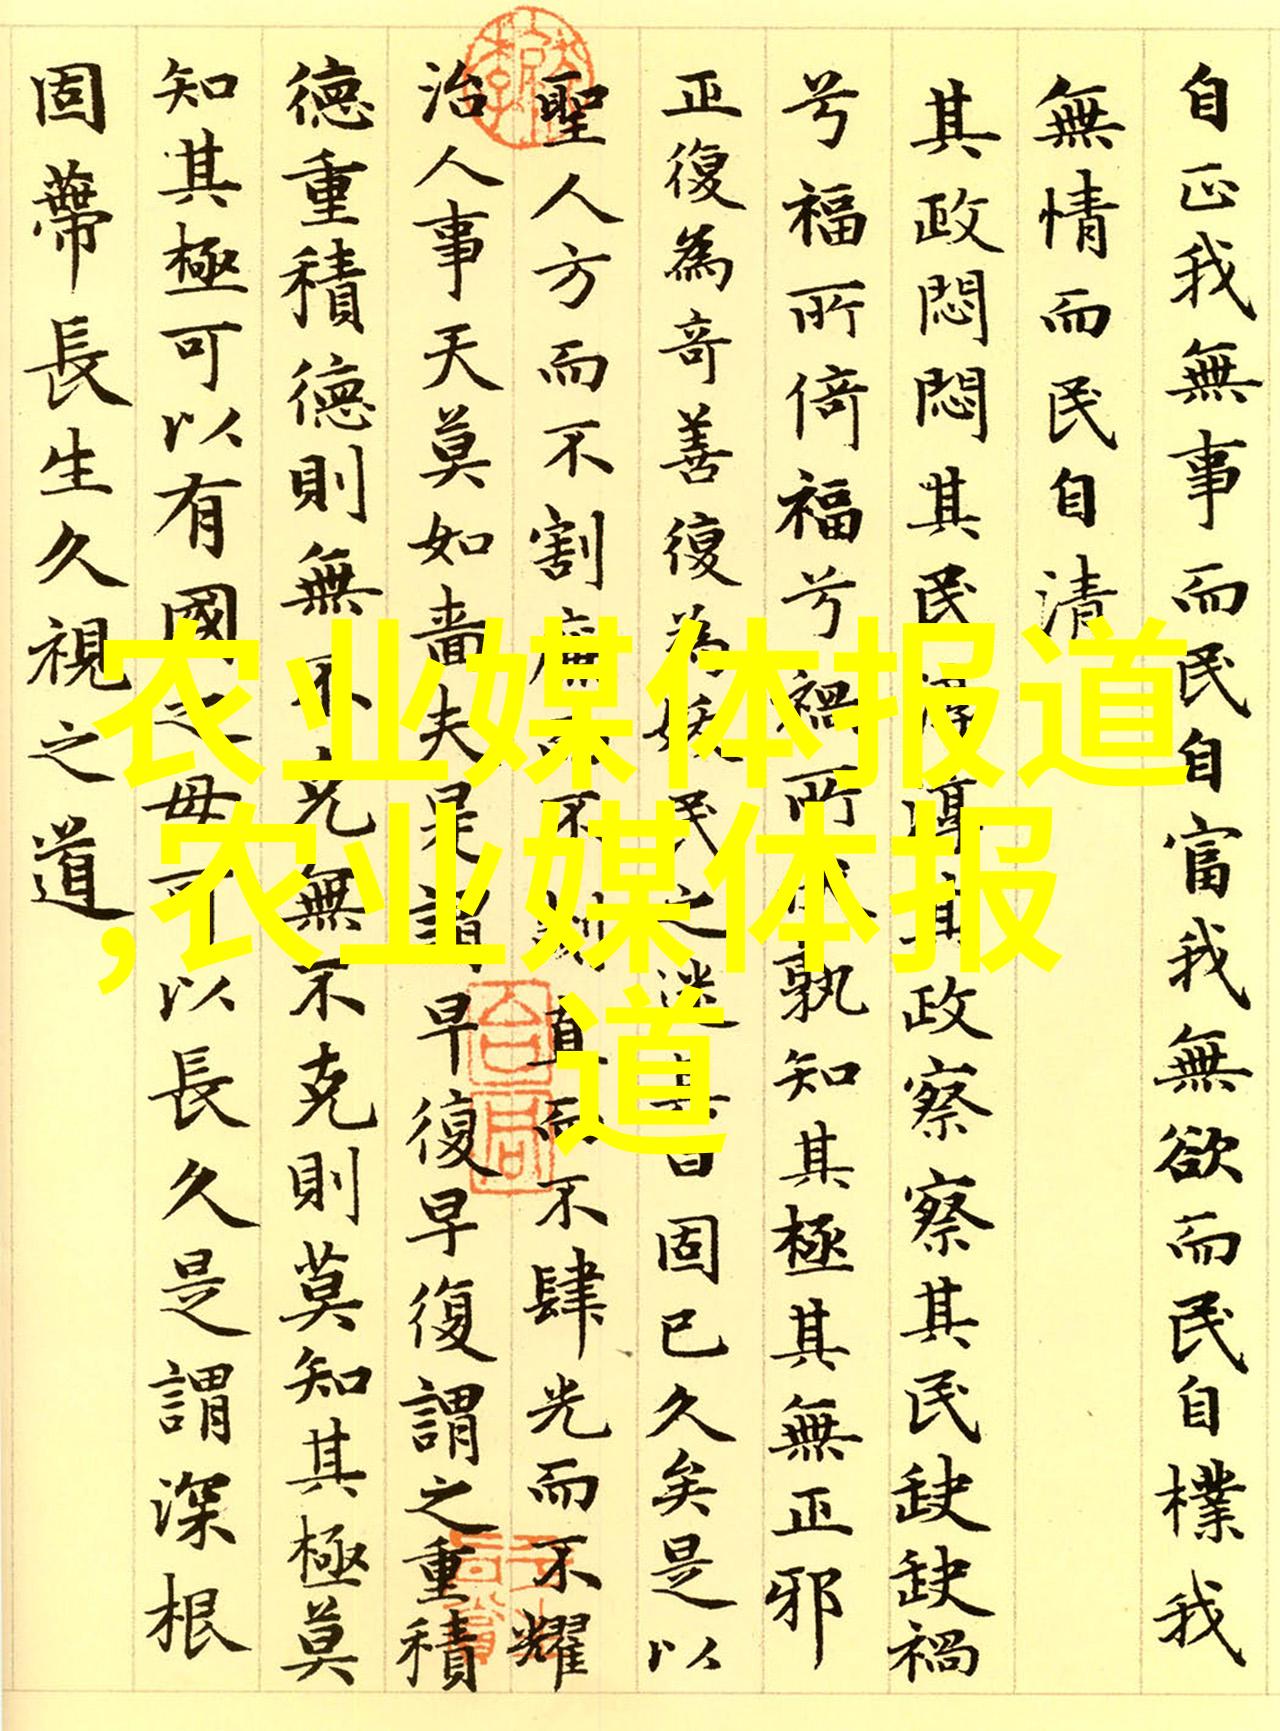 自正我無事而民自富我無欲而民自樸我
無情而民自清
其政悶悶其民淳淳其政察察其民缺缺禍
兮福所倚福兮禍所伏孰知其極其無正邪
正復為奇善復為妖民之迷其日固已久矣是以
聖人方而不割廉而不劌直而不肆光而不耀
治人事天莫如嗇夫是謂早復早復謂之重積
德重積德則無不克無不克則莫知其極莫
知其極可以有國之母可以長久是謂深根
固蒂長生久視之道
农业媒体报道
,农业媒体报
道